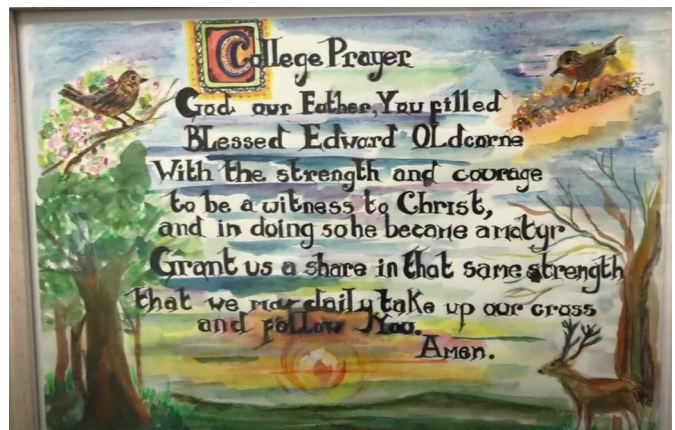 College Prayer
God our Father, You filled
Blessed Edward Oldcorne
With the strength and courage
to be a witness to Christ,
and in doing so he became a matyr
Grant us a share in that same strength
that we may daily take up our cross
and follow You.
Amen.